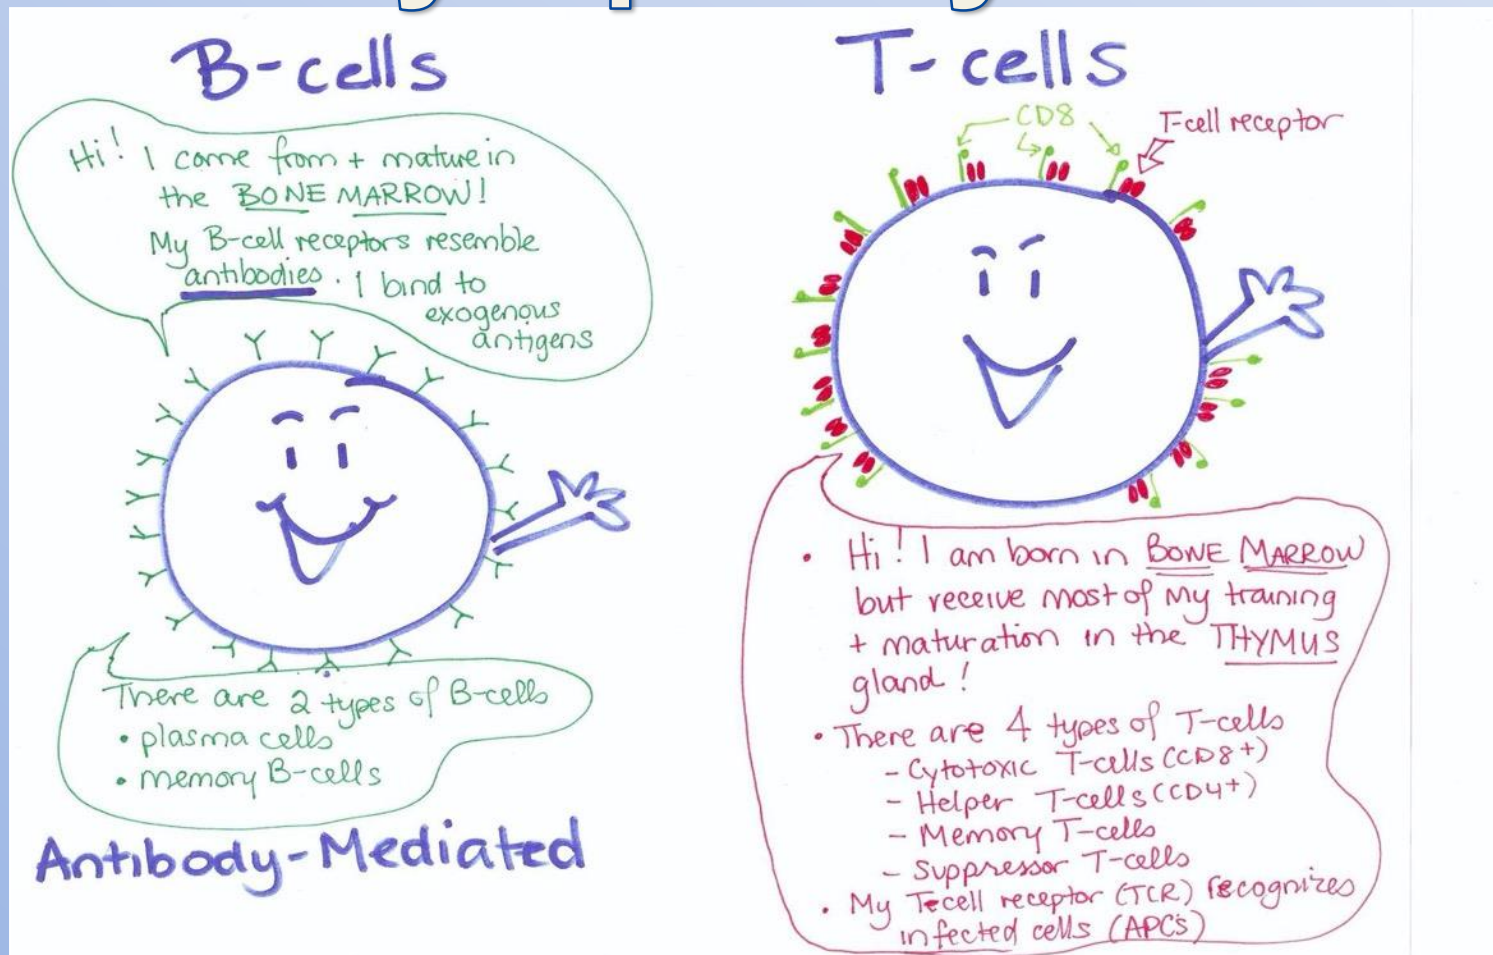 B-cells
Hi! I come from + mature in
the BONE MARROW!
My B-cell receptors resemble
antibodies. I bind to
exogenous
antigens
There are 2 types of B-cells
• plasma cells
• memory B-cells
Antibody-Mediated
T-cells
CD8
T-cell receptor
• Hi! I am born in BONE MARROW
but receive most of my training
+ maturation in the THYMUS
gland!
• There are 4 types of T-cells
- Cytotoxic T-cells (CD8+)
- Helper T-cells (CD4+)
- Memory T-cells
- Suppressor T-cells
• My T-cell receptor (TCR) recognizes
infected cells (APCs)